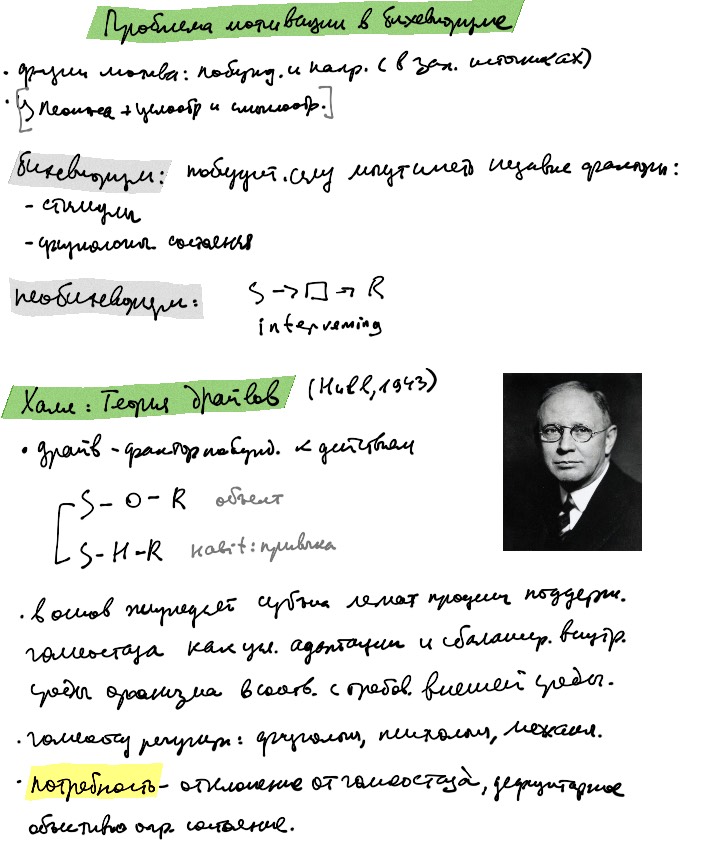 Проблема мотивации в бихевиоризме
• функции мотива: побужд. и напр. (в зап. источниках)
• [у Леонтьева + целостр и смыслообр.]
бихевиоризм: побудит. силу могут иметь независ факторы:
- стимулы
- физиологич. состояния
необихевиоризм: S → □ → R
intervening
Халл: Теория драйвов (Hull, 1943)
• драйв - фактор побужд. к действиям
S - O - R объект
S - H - R habit: привычка
• в основ жизнедеят субъекта лежат процессы поддерж.
гомеостаза как усл. адаптации и сбалансир. внутр.
среды организма в соотв. с требов. внешней среды.
• гомеостаз регулир: физиологич, психологич, механизм.
• потребность - отклонение от гомеостаза, дефицитарное
объективно опр. состояние.